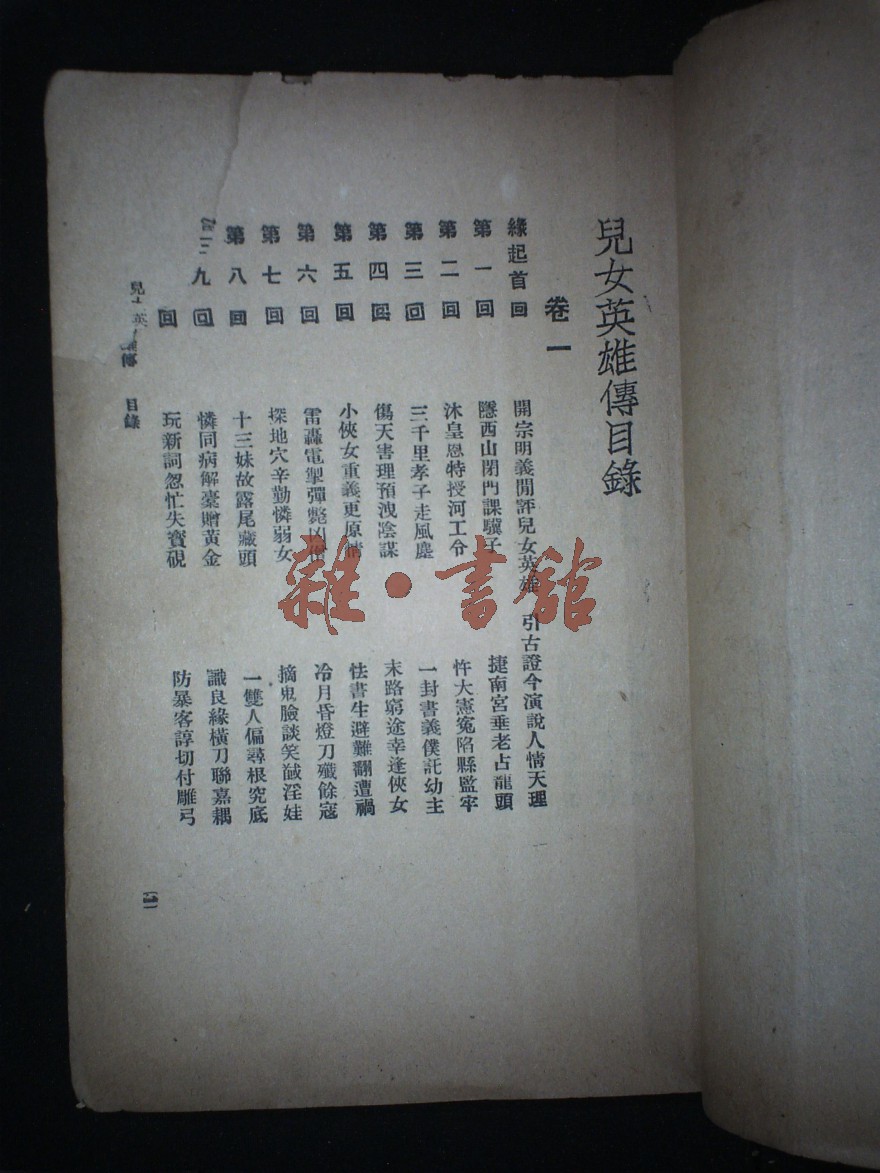 兒女英雄傳目錄
卷一
緣起首回 開宗明義閒評兒女英雄 引古證今演說人情天理
第一回 隱西山閉門課驥子 捷南宮垂老占龍頭
第二回 沐皇恩特授河工令 忤大憲冤陷縣監牢
第三回 三千里孝子走風塵 一封書義僕託幼主
第四回 傷天害理預洩陰謀 末路窮途幸逢俠女
第五回 小俠女重義更原情 怯書生避難翻遭禍
第六回 雷轟電掣彈斃凶僧 冷月昏燈刀殲餘寇
第七回 探地穴辛勤憐弱女 摘鬼臉談笑馘淫娃
第八回 十三妹故露尾藏頭 一雙人偏尋根究底
九回 憐同病解橐贈黃金 識良緣橫刀聯嘉耦
回 玩新詞忽忙失寶硯 防暴客諄切付雕弓
兒女英雄傳 目錄
雜·書館